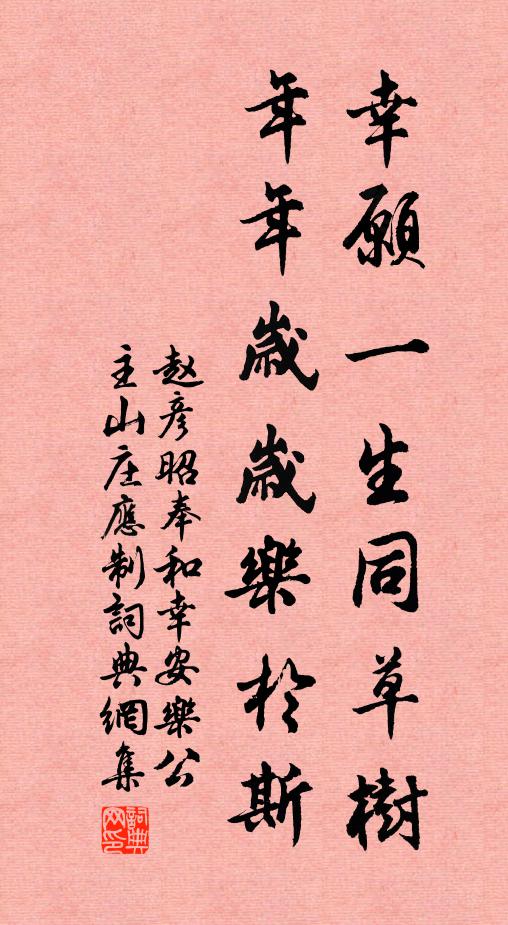 幸願一生同草樹
年年歲歲樂於斯
赵彦昭奉和幸安樂公
主山庄應制詞典網集
詞典
网印